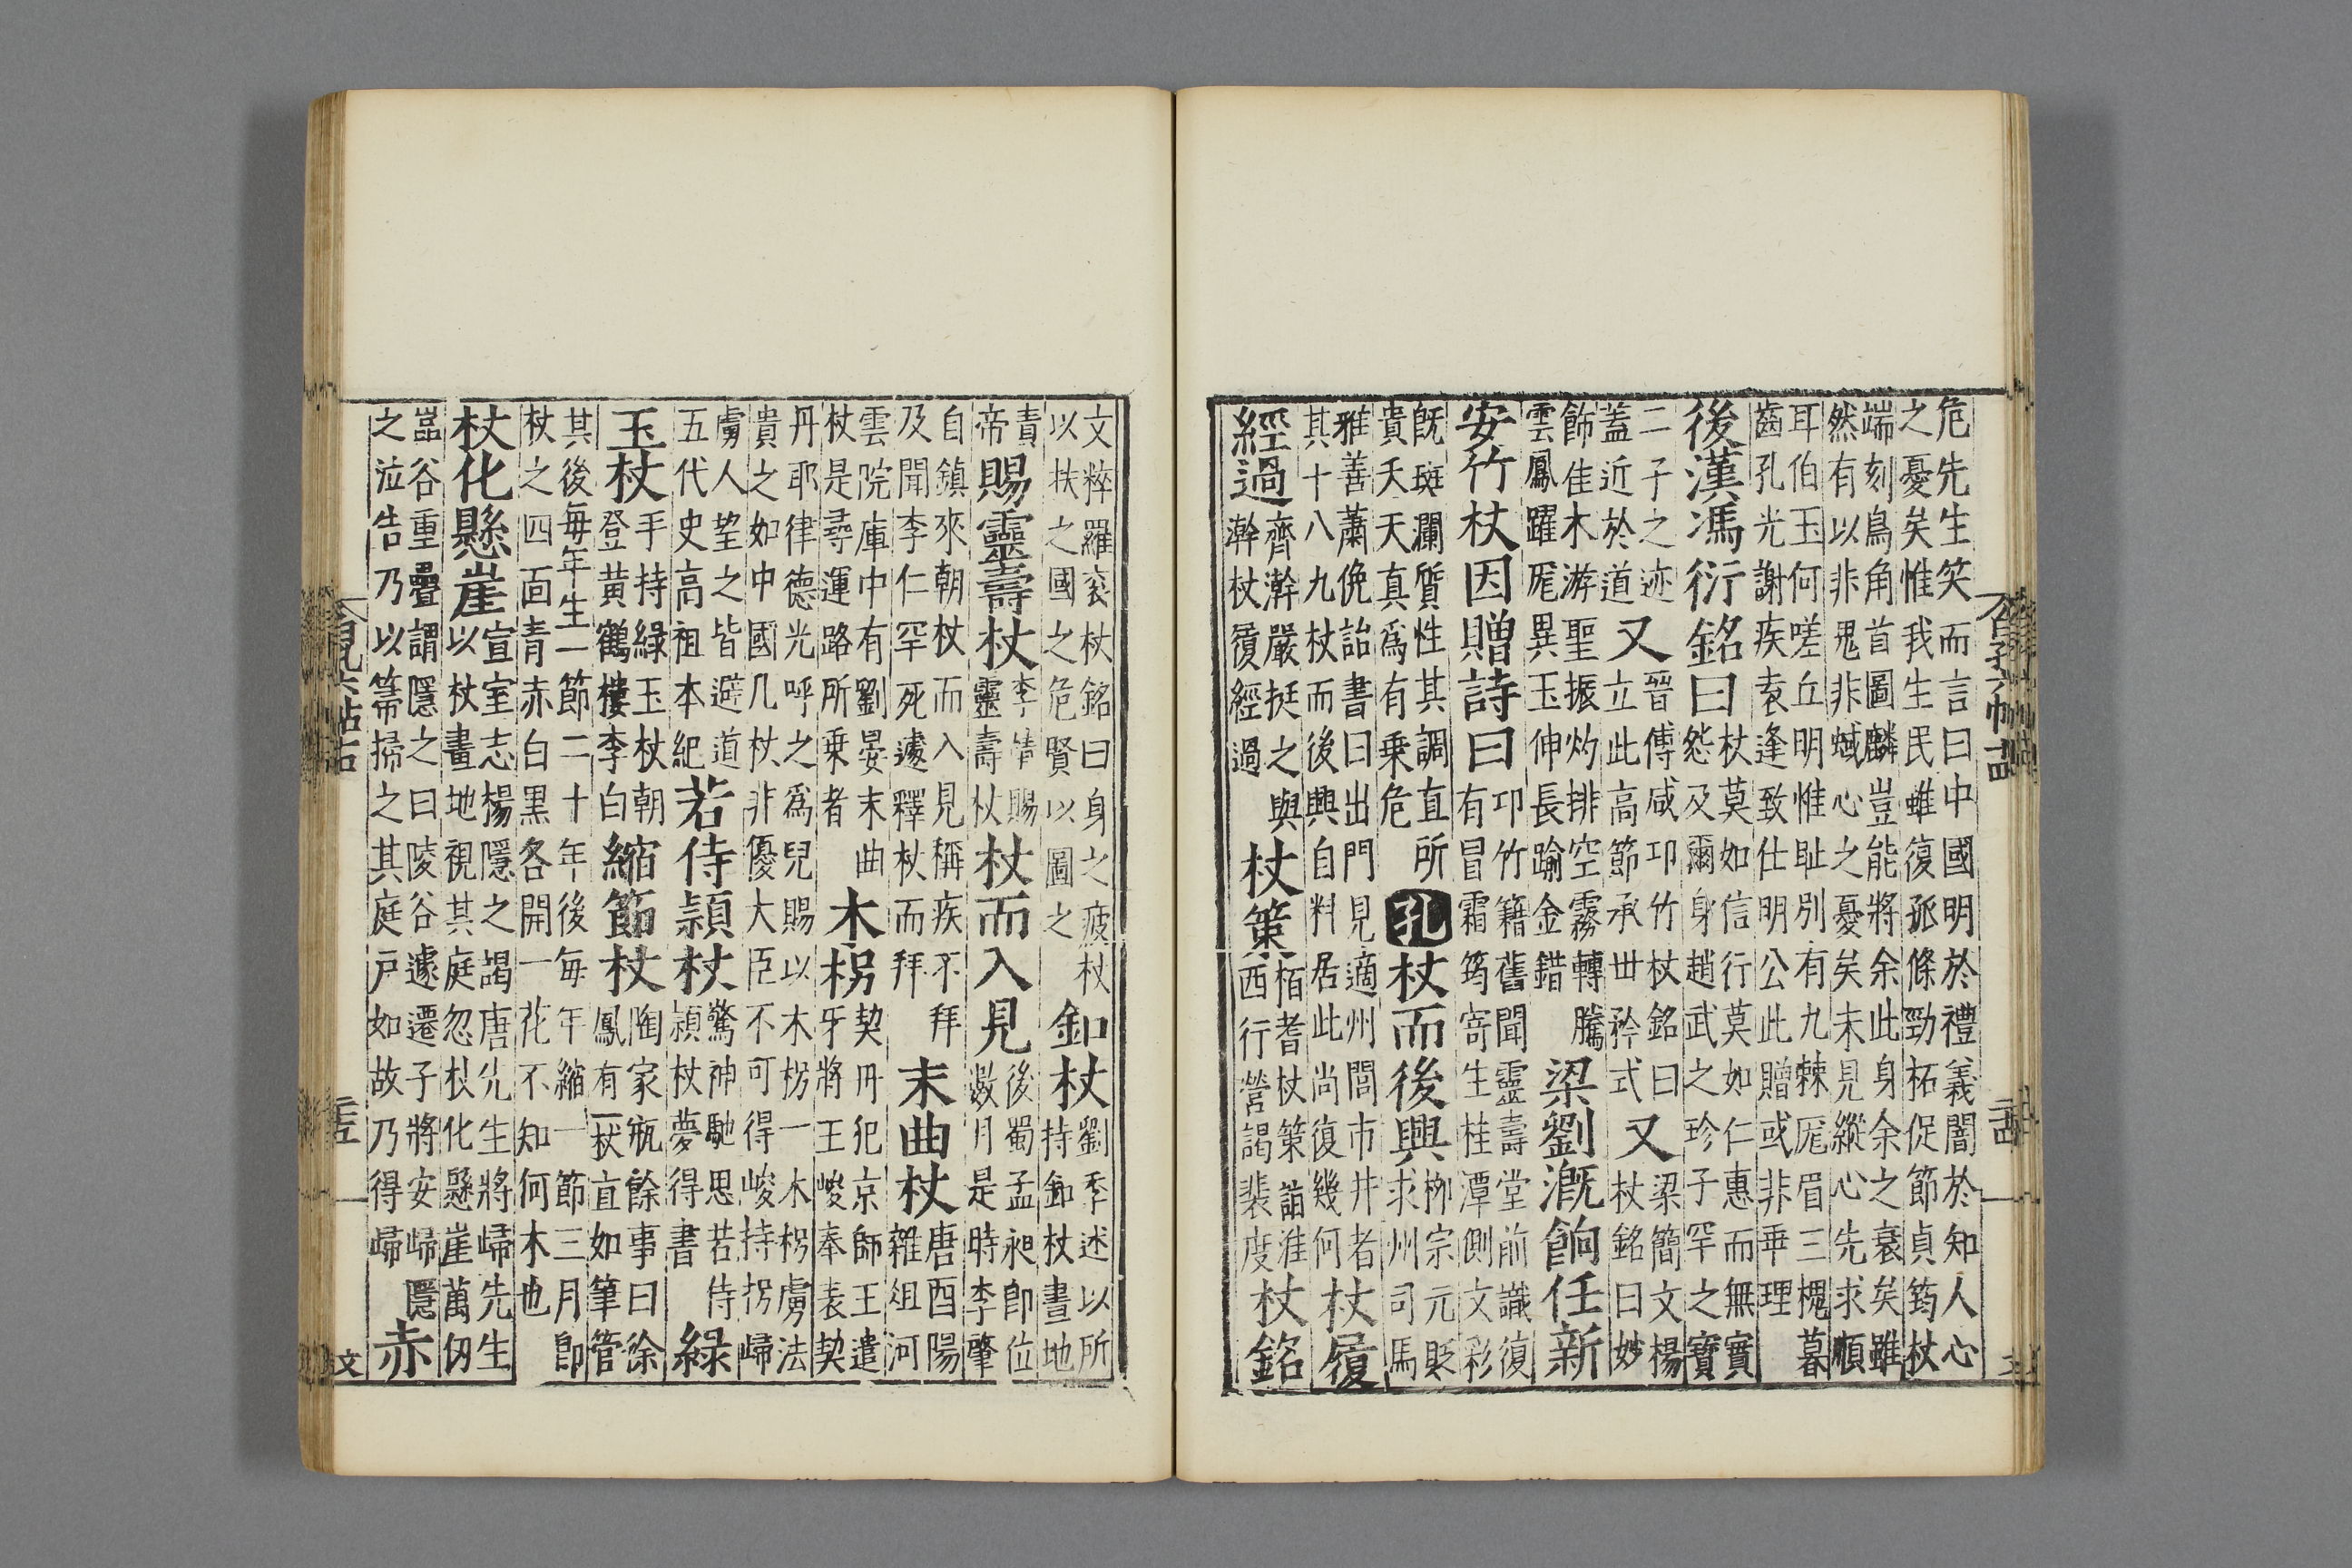 危先生笑而言曰中國明於禮義闇於知人心
之憂矣惟我生民雖復孤條勁柘促節貞筠杖
端刻鳥角首圖麟豈能將余此身余之衰矣雖
然有以非鬼非蜮心之憂矣未見縱心先求順
耳伯玉何嗟丘明惟恥別有九棘厖眉三槐暮
齒孔光謝疾袁逢致仕明公此贈或非乖理
後漢馮衍銘曰杖莫如信行莫如仁惠而無實
怨及爾身趙武之珍子罕之寶
二子之迹又晉傅咸邛竹杖銘曰又梁簡文楊
蓋近於道立此高節承世矜式杖銘曰妙
飾佳木游聖振灼排空霧轉騰梁劉漑餉任新
雲鳳躍厖異玉伸長踰金錯
安竹杖因贈詩曰邛竹籍舊聞靈壽堂前識復
有冒霜筠寄生桂潭側文彩
旣斑斕質性其調直所孔杖而後興柳宗元貶
貴夭夭天真爲有乗危求州司馬
雅善蕭俛詒書曰出門見適州閭市井者杖履
其十八九杖而後興自料居此尚復幾何
經過齊澣嚴挺之與杖策栢耆杖策詣淮杖銘
澣杖履經過西行營謁裴度
文粹羅衮杖銘曰身之疲杖釦杖劉季述以所
以扶之國之危賢以圖之持釦杖晝地
責帝賜靈壽杖李情賜杖而入見後蜀孟昶即位
靈壽杖数月是時李肇
自鎮來朝杖而入見稱疾不拜末曲杖唐酉陽
及聞李仁罕死遽釋杖而拜雜俎河
雲院庫中有劉晏末曲木柺契丹犯京師王遣
杖是尋運路所乗者牙將王峻奉表契
丹耶律德光呼之爲兒賜以木柺一木柺虜法
貴之如中國几杖非優大臣不可得峻持柺歸
虜人望之皆避道若侍潁杖驚神馳思若侍綠
五代史高祖本紀潁杖夢得書
玉杖手持綠玉杖朝縮節杖陶家瓶餘事曰徐
登黄鶴樓李白鳳有一杖直如筆管
其後每年生一節二十年後每年縮一節三月即
杖之四面青赤白黑各開一花不知何木也
杖化懸崖宣室志楊隱之謁唐先生將歸先生
以杖畫地視其庭忽杖化懸崖萬仭
嵓谷重疊謂隱之曰陵谷遽遷子將安歸隱赤
之泣告乃以箒掃之其庭戸如故乃得歸